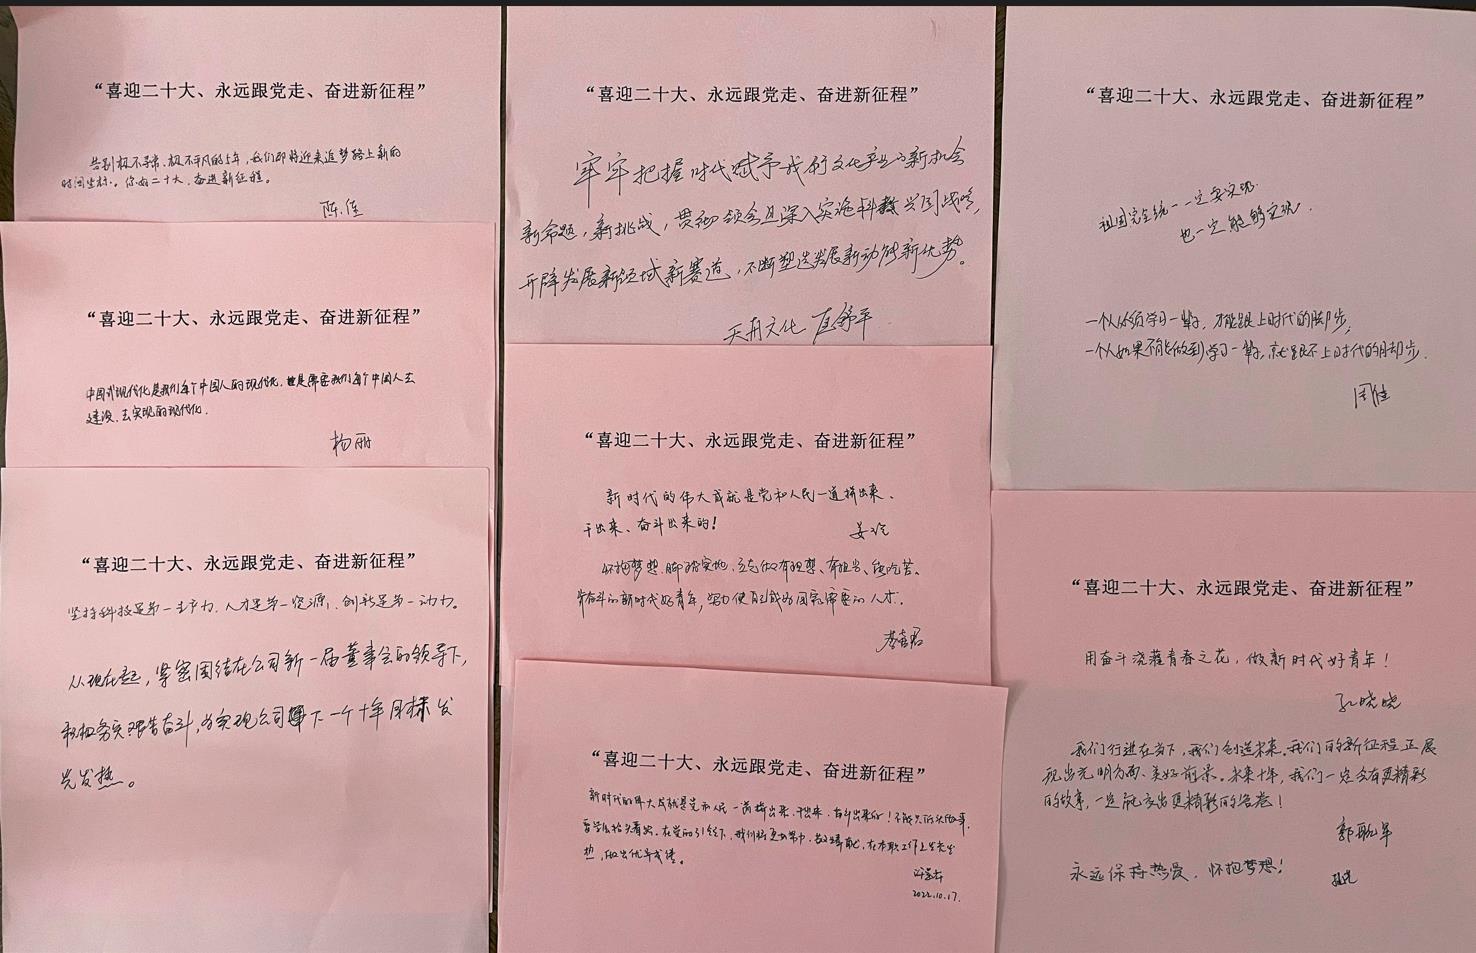 “喜迎二十大、永远跟党走、奋进新征程”
告别极不寻常、极不平凡的5年，我们即将迎来追梦路上新的
时间坐标。你好二十大，奋进新征程。
陈佳
“喜迎二十大、永远跟党走、奋进新征程”
中国式现代化是我们每个中国人的现代化，也是需要我们每个中国人去
建设、去实现的现代化。
杨丽
“喜迎二十大、永远跟党走、奋进新征程”
坚持科技是第一生产力、人才是第一资源、创新是第一动力。
从现在起，紧密团结在公司新一届董事会的领导下，
积极务实艰苦奋斗，为实现公司下一个十年目标发
光发热。
“喜迎二十大、永远跟党走、奋进新征程”
牢牢把握时代赋予我们文化产业的新机会
新命题，新挑战，贯彻领会且深入实施科教兴国战略，
开辟发展新领域新赛道，不断塑造发展新动能新优势。
天舟文化
“喜迎二十大、永远跟党走、奋进新征程”
新时代的伟大成就是党和人民一道拼出来、
干出来、奋斗出来的！
姜玲
怀抱梦想、脚踏实地，立志做有理想、有担当、能吃苦、
肯奋斗的新时代好青年，努力使自己成为国家需要的人才。
“喜迎二十大、永远跟党走、奋进新征程”
新时代的伟大成就是党和人民一道拼出来、干出来、奋斗出来的！不能只低头做事，
要学会抬头看路。在党的引领下，我们将更加努力，在本职工作上发光发
热，做出优异成绩。
2022.10.17.
“喜迎二十大、永远跟党走、奋进新征程”
祖国完全统一一定要实现，
也一定能够实现。
一个人必须学习一辈子，才能跟上时代的脚步，
一个人如果不能做到学习一辈子，就跟不上时代的脚步。
周佳
“喜迎二十大、永远跟党走、奋进新征程”
用奋斗浇灌青春之花，做新时代好青年！
孔晓晓
我们行进在当下，我们创造未来。我们的新征程正展
现出光明方面、美好前景。未来十年，我们一定会有更精彩
的故事，一定能交出更精彩的答卷！
永远保持热爱，怀抱梦想！